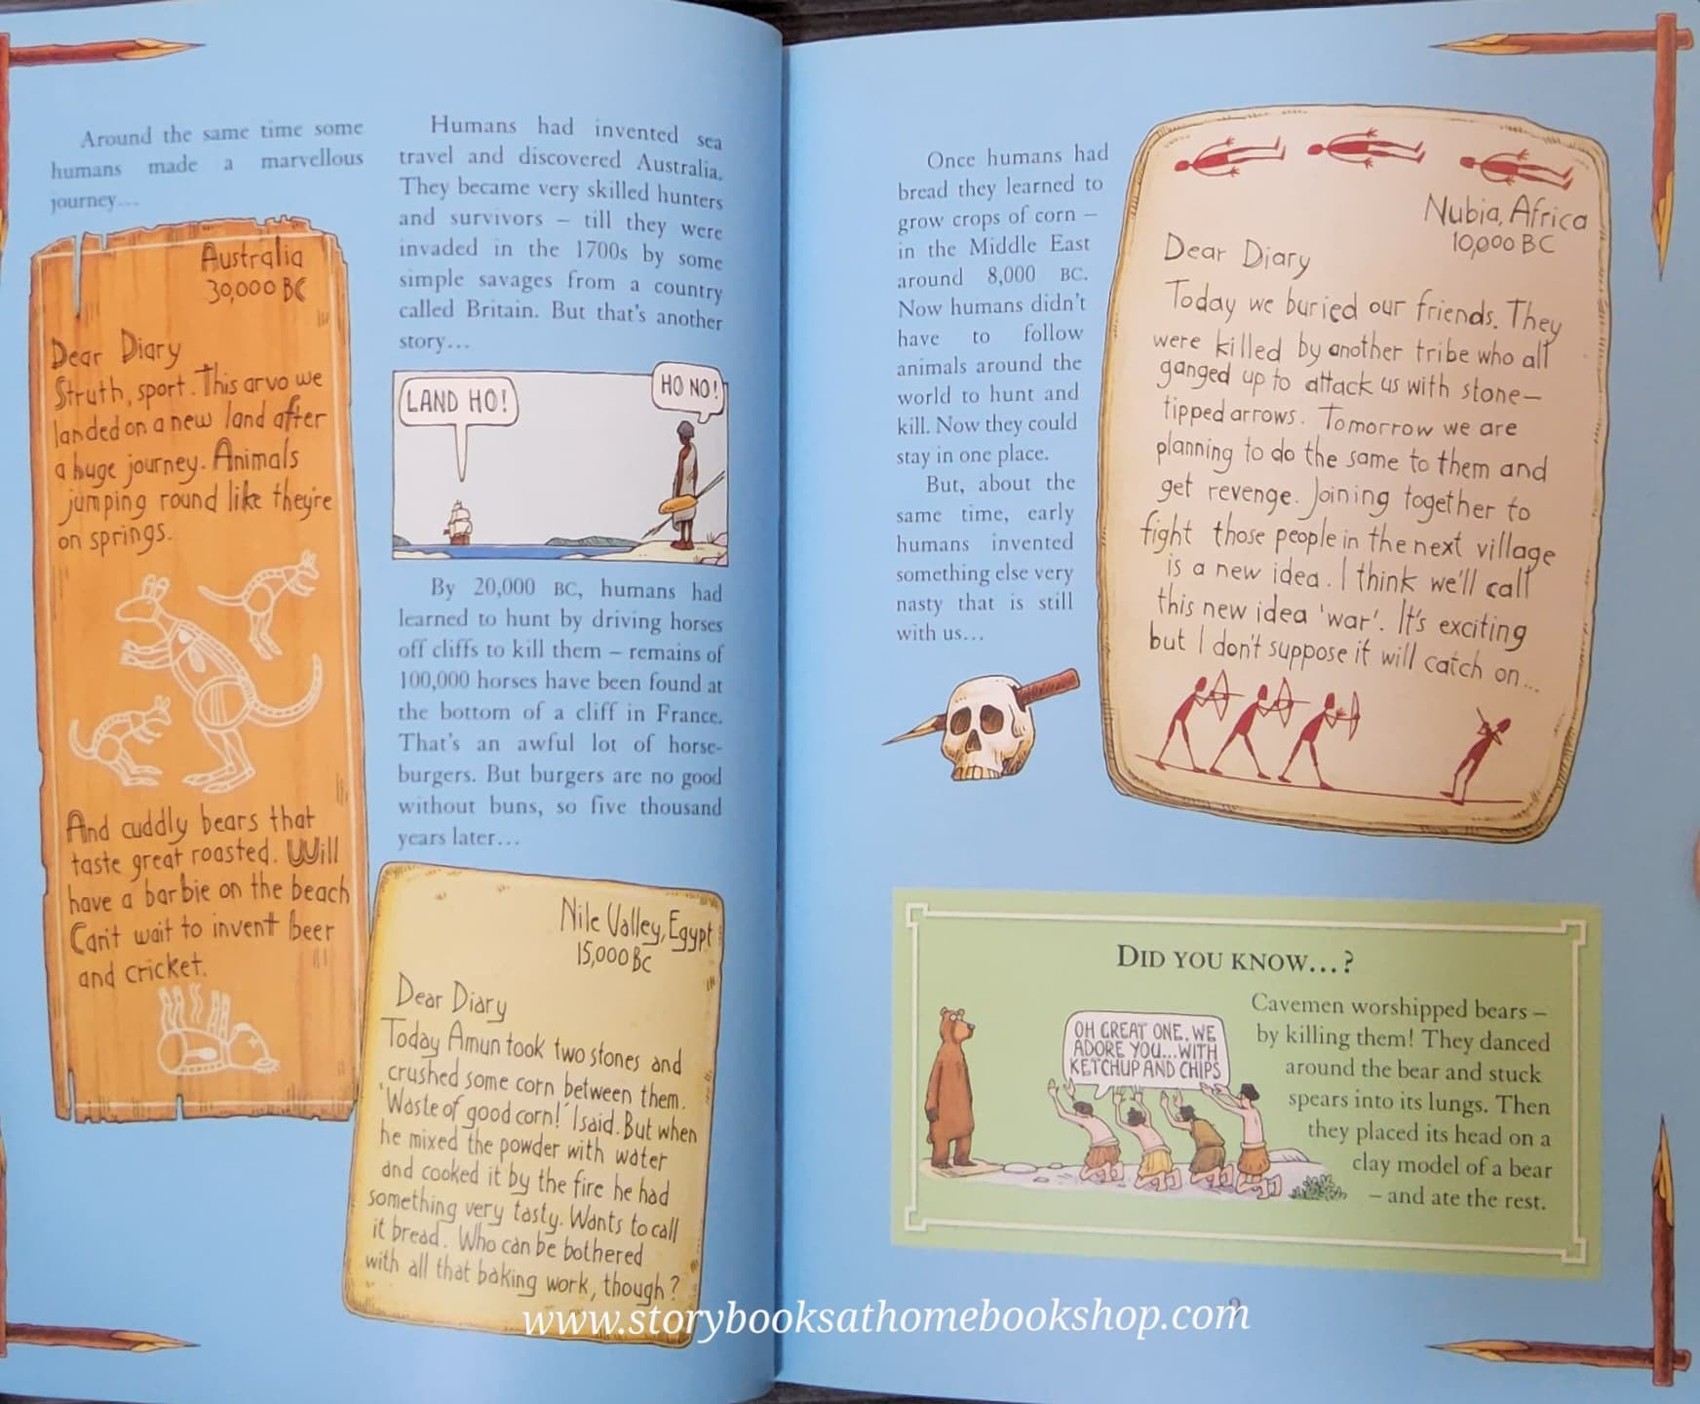 Around the same time some
humans made a marvellous
journey...
Australia
30,000 BC
Dear Diary
Struth, sport. This arvo we
landed on a new land after
a huge journey. Animals
jumping round like they're
on springs.
And cuddly bears that
taste great roasted. Will
have a barbie on the beach
Can't wait to invent beer
and cricket.
Humans had invented sea
travel and discovered Australia.
They became very skilled hunters
and survivors – till they were
invaded in the 1700s by some
simple savages from a country
called Britain. But that's another
story...
LAND HO!
HO NO!
By 20,000 BC, humans had
learned to hunt by driving horses
off cliffs to kill them – remains of
100,000 horses have been found at
the bottom of a cliff in France.
That's an awful lot of horse-
burgers. But burgers are no good
without buns, so five thousand
years later...
Nile Valley, Egypt
15,000 BC
Dear Diary
Today Amun took two stones and
crushed some corn between them.
'Waste of good corn!' I said. But when
he mixed the powder with water
and cooked it by the fire he had
something very tasty. Wants to call
it bread. Who can be bothered
with all that baking work, though?
Once humans had
bread they learned to
grow crops of corn –
in the Middle East
around 8,000 BC.
Now humans didn't
have to follow
animals around the
world to hunt and
kill. Now they could
stay in one place.
But, about the
same time, early
humans invented
something else very
nasty that is still
with us...
Nubia, Africa
10,000 BC
Dear Diary
Today we buried our friends. They
were killed by another tribe who all
ganged up to attack us with stone-
tipped arrows. Tomorrow we are
planning to do the same to them and
get revenge. Joining together to
fight those people in the next village
is a new idea. I think we'll call
this new idea 'war'. It's exciting
but I don't suppose it will catch on...
DID YOU KNOW...?
Cavemen worshipped bears –
by killing them! They danced
around the bear and stuck
spears into its lungs. Then
they placed its head on a
clay model of a bear
– and ate the rest.
OH GREAT ONE. WE
ADORE YOU...WITH
KETCHUP AND CHIPS
9
www.storybooksathomebookshop.com